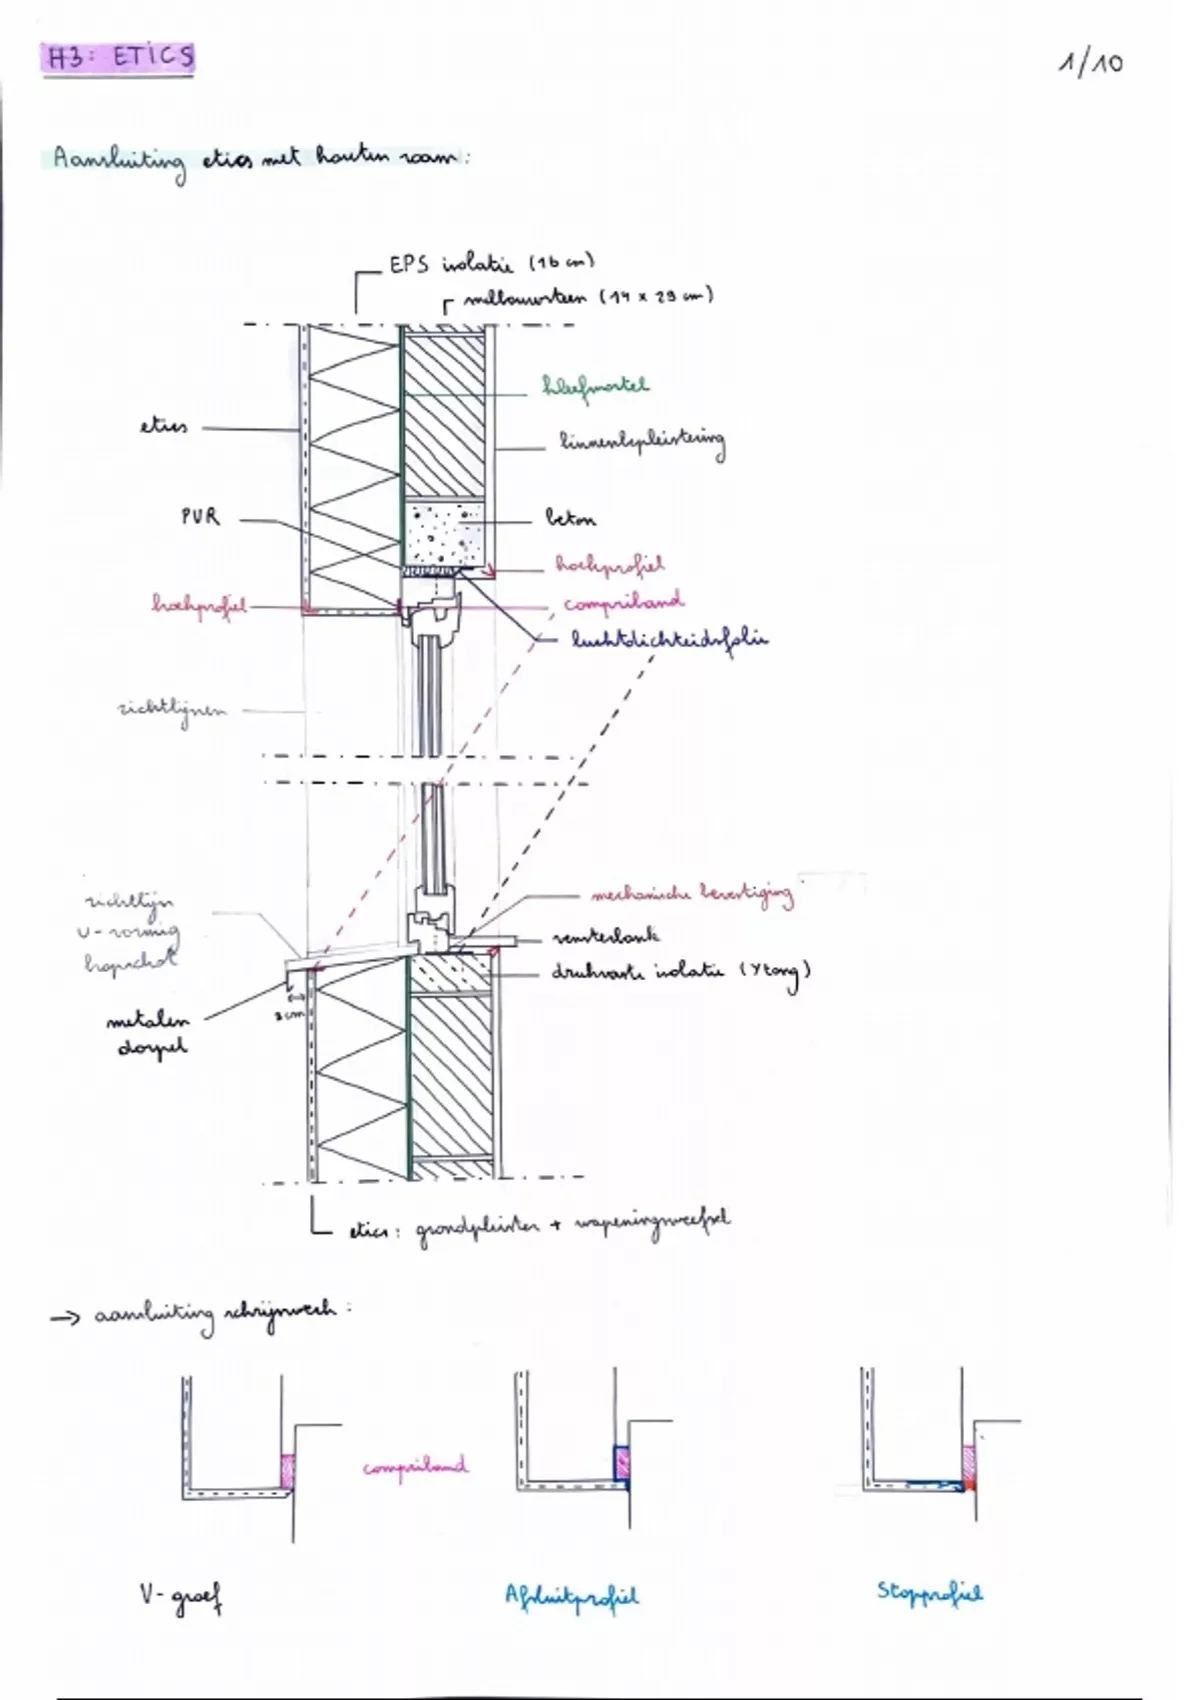 H3: ETICS
1/10
Aansluiting etics met houten raam:
EPS isolatie (16 cm)
snelbouwsteen (14 x 29 cm)
kleefmortel
etics
binnenbepleistering
PUR
beton
hoekprofiel
hoekprofiel
compriband
luchtdichteidsfolie
richtlijnen
richtlijn
mechanische bevestiging
U-vormig
kopschot
vensterbank
drukvaste isolatie (Ytong)
3 cm
metalen
dorpel
etics: grondpleister + wapeningsweefsel
→ aansluiting schrijnwerk:
compriband
V-groef
Afsluitprofiel
Stopprofiel